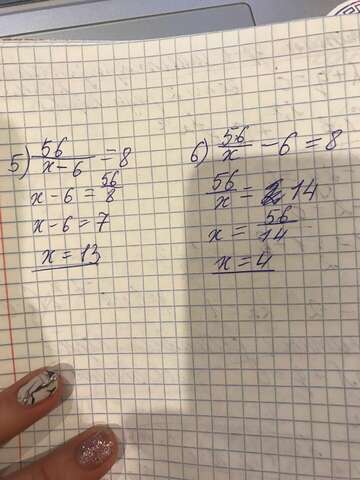 5) 56/(x-6) = 8
x-6 = 56/8
x-6 = 7
x = 13
6) 56/x - 6 = 8
56/x = 14
x = 56/14
x = 4